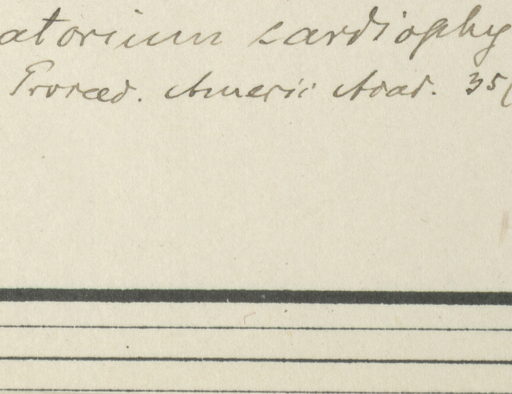 atorium cardiophy
Proced. Americ Acad. 35(